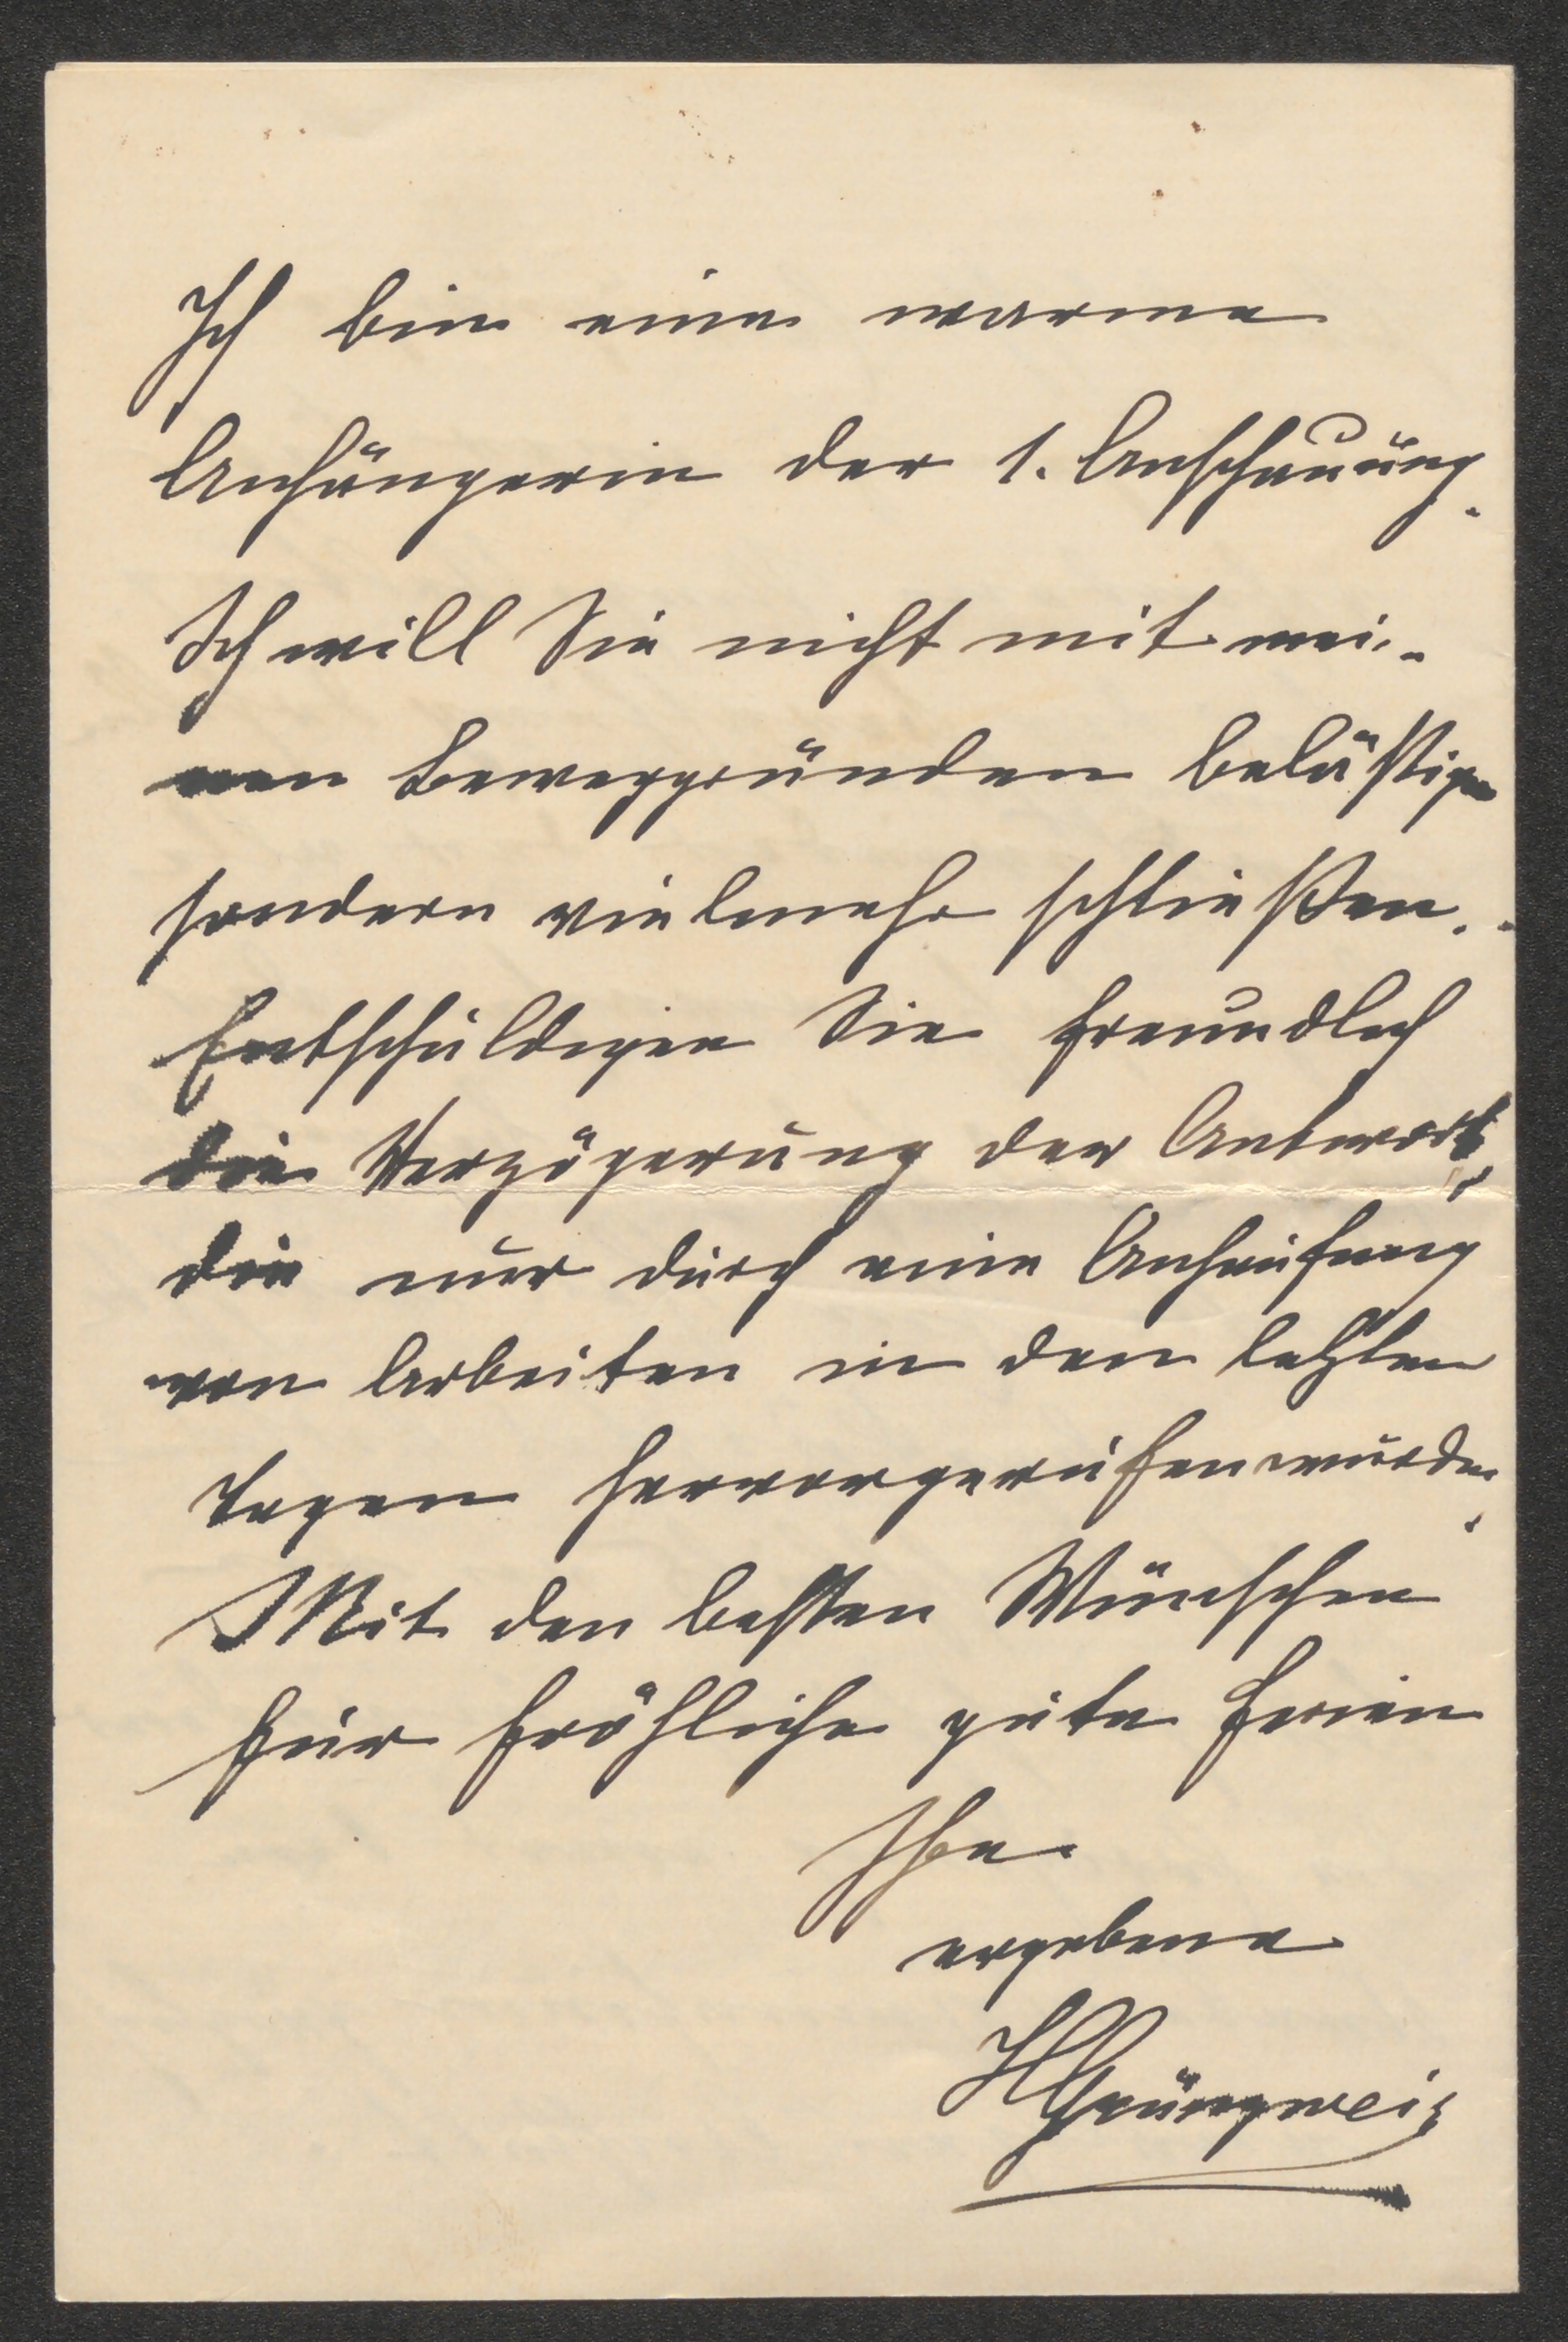 Ich bin eine warme
Anhängerin der 1. Anschauung.
Ich will Sie nicht mit mei-
nen Beweggründen belästigen
sondern vielmehr schließen.
Entschuldigen Sie freundlich
die Verzögerung der Antwort,
die nur durch eine Anhäufung
von Arbeiten in den letzten
Tagen hervorgerufen wurde.
Mit den besten Wünschen
für fröhliche gute Ferien
Ihre
ergebene